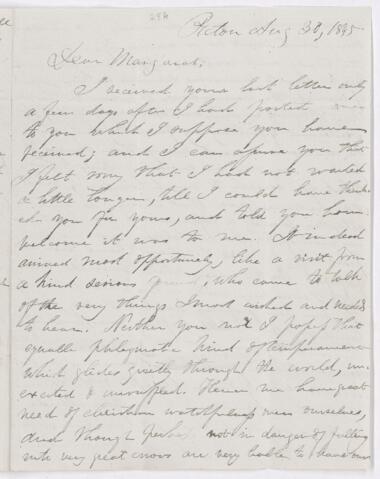 Picton Aug 30, 1845
Dear Margaret,
I received your last letter only
a few days after I had posted one
to you which I suppose you have
received; and I can assure you that
I felt sorry that I had not waited
a little longer, till I could have thank-
ed you for yours, and told you how
welcome it was to me. It indeed
arrived most opportunely, like a visit from
a kind serious friend, who came to talk
of the very things I most wished and needed
to hear. Neither you nor I possess that
equable phlegmatic kind of temperament
which glides quietly through the world, un-
excited & unruffled. Hence we have great
need of christian watchfulness over ourselves,
and though perhaps not in danger of falling
into very great errors are very liable to have our